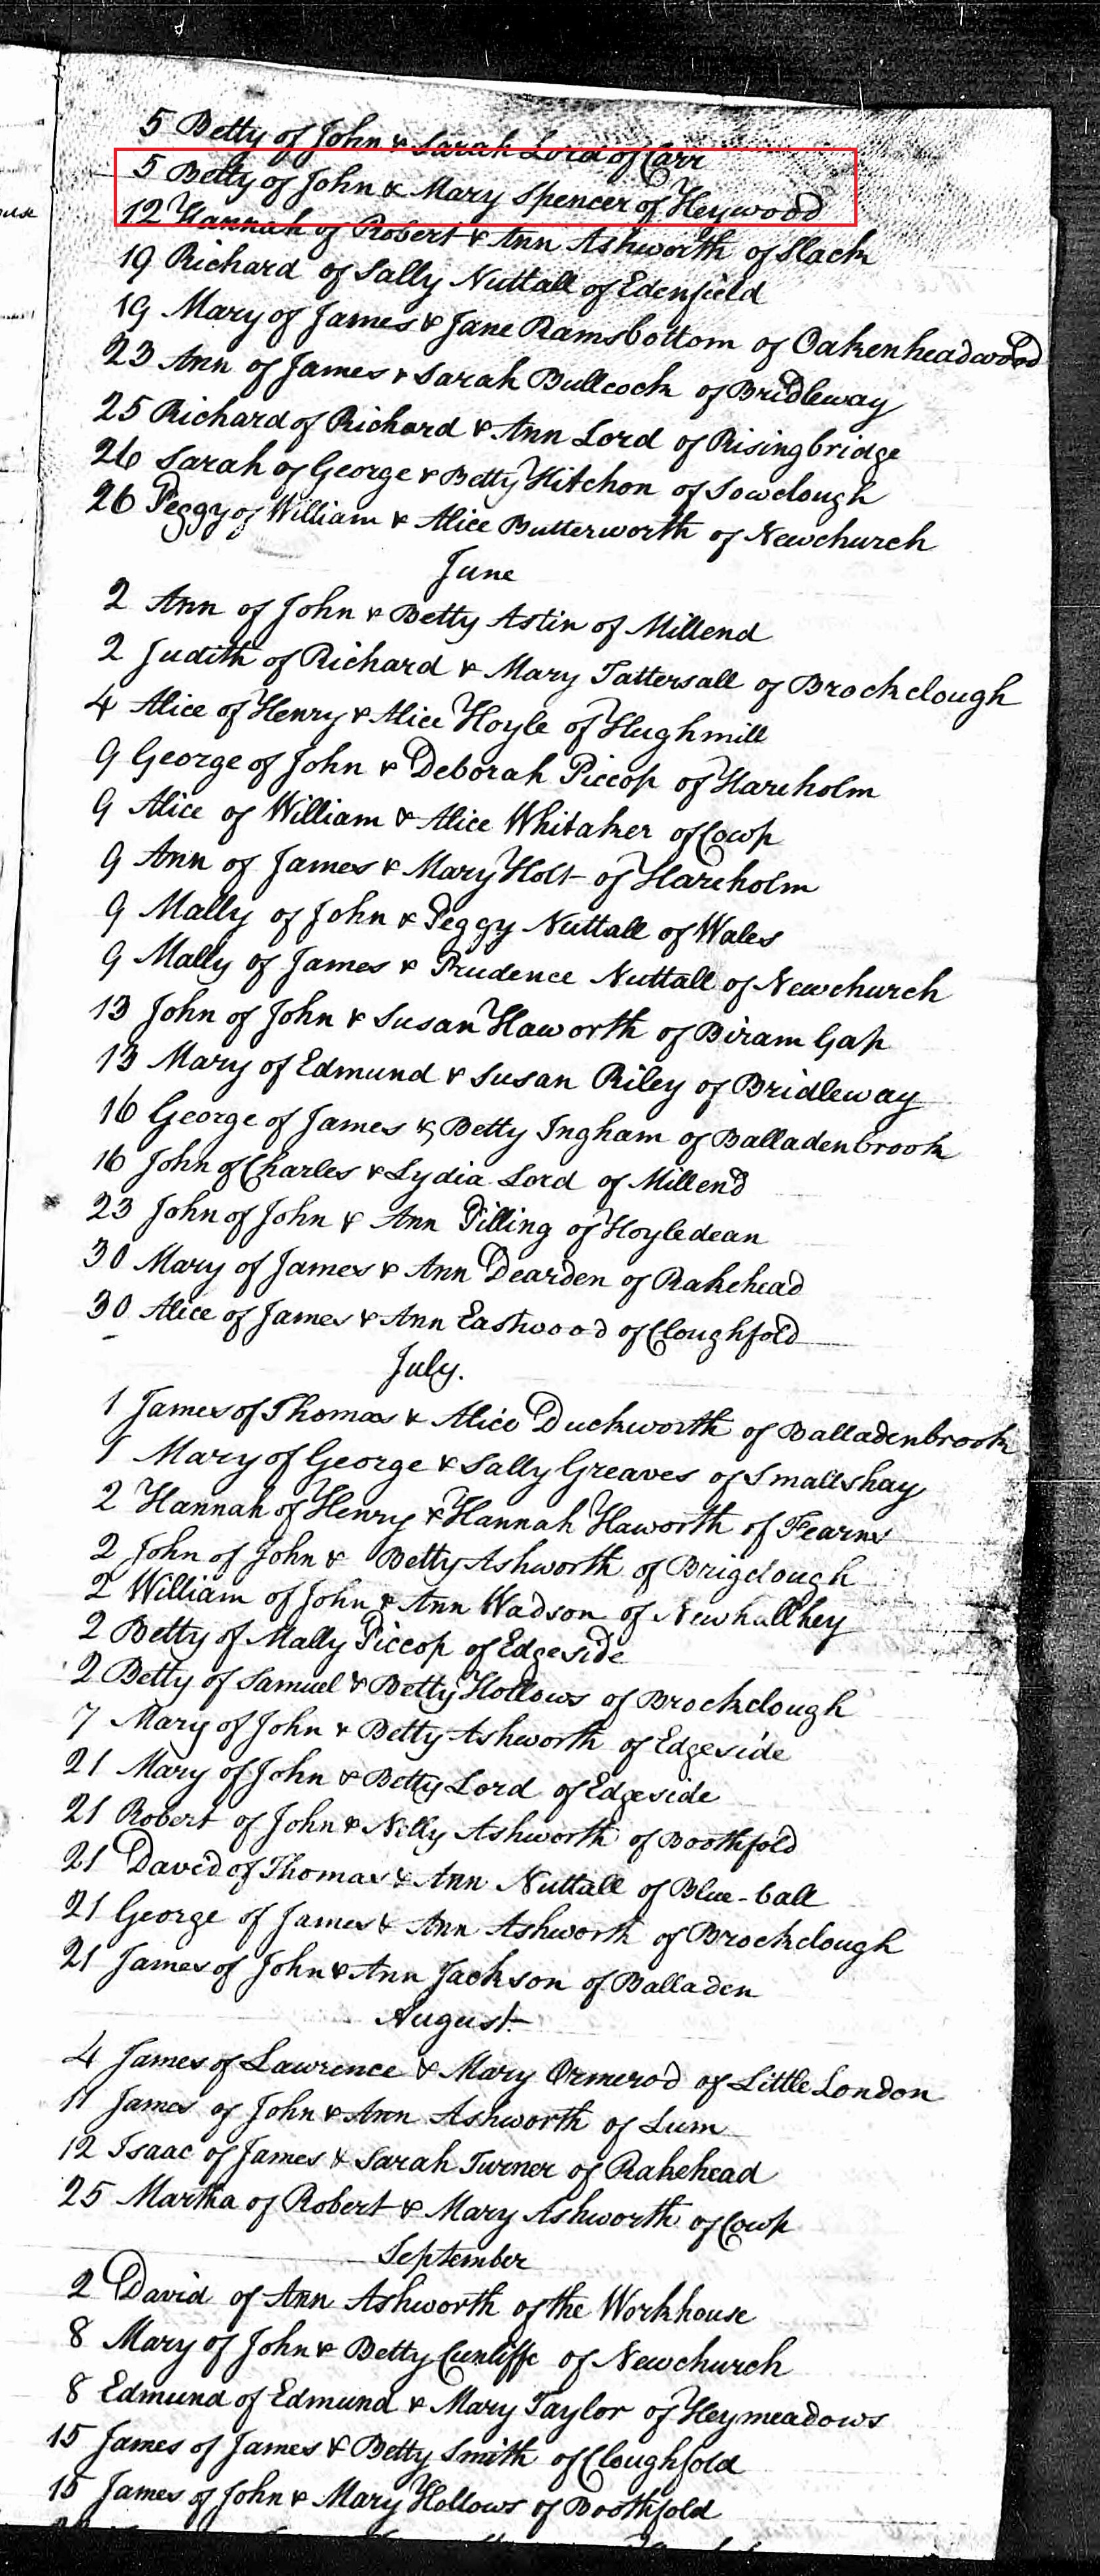 5 Betty of John & Sarah Lord of Carr
5 Betty of John & Mary Spencer of Heywood
12 Hannah of Robert & Ann Ashworth of Slack
19 Richard of Sally Nuttall of Edenfield
19 Mary of James & Jane Ramsbottom of Oakenheadwood
23 Ann of James & Sarah Bullcock of Bridleway
25 Richard of Richard & Ann Lord of Risingbridge
26 Sarah of George & Betty Hitchon of Sowclough
26 Peggy of William & Alice Butterworth of Newchurch
June
2 Ann of John & Betty Astin of Millend
2 Judith of Richard & Mary Tattersall of Brockclough
4 Alice of Henry & Alice Hoyle of Hughmill
9 George of John & Deborah Piccop of Hareholm
9 Alice of William & Alice Whitaker of Cowp
9 Ann of James & Mary Holt of Hareholm
9 Mally of John & Peggy Nuttall of Wales
9 Mally of James & Prudence Nuttall of Newchurch
13 John of John & Susan Haworth of Biram Gap
13 Mary of Edmund & Susan Riley of Bridleway
16 George of James & Betty Ingham of Balladenbrook
16 John of Charles & Lydia Lord of Millend
23 John of John & Ann Pilling of Hoyledean
30 Mary of James & Ann Dearden of Rakehead
30 Alice of James & Ann Eastwood of Cloughfold
July.
1 James of Thomas & Alice Duckworth of Balladenbrook
1 Mary of George & Sally Greaves of Smallshay
2 Hannah of Henry & Hannah Haworth of Fearns
2 John of John & Betty Ashworth of Brigclough
2 William of John & Ann Wadson of Newhallhey
2 Betty of Mally Piccop of Edgeside
2 Betty of Samuel & Betty Hollows of Brockclough
7 Mary of John & Betty Ashworth of Edgeside
21 Mary of John & Betty Lord of Edgeside
21 Robert of John & Nelly Ashworth of Boothfold
21 David of Thomas & Ann Nuttall of Blue-ball
21 George of James & Ann Ashworth of Brockclough
21 James of John & Ann Jackson of Balladen
August
4 James of Lawrence & Mary Ormerod of Little London
11 James of John & Ann Ashworth of Lum
12 Isaac of James & Sarah Turner of Rakehead
25 Martha of Robert & Mary Ashworth of Cowp
September
2 David of Ann Ashworth of the Workhouse
8 Mary of John & Betty Cunliffe of Newchurch
8 Edmund of Edmund & Mary Taylor of Heymeadows
15 James of James & Betty Smith of Cloughfold
15 James of John & Mary Hollows of Boothfold